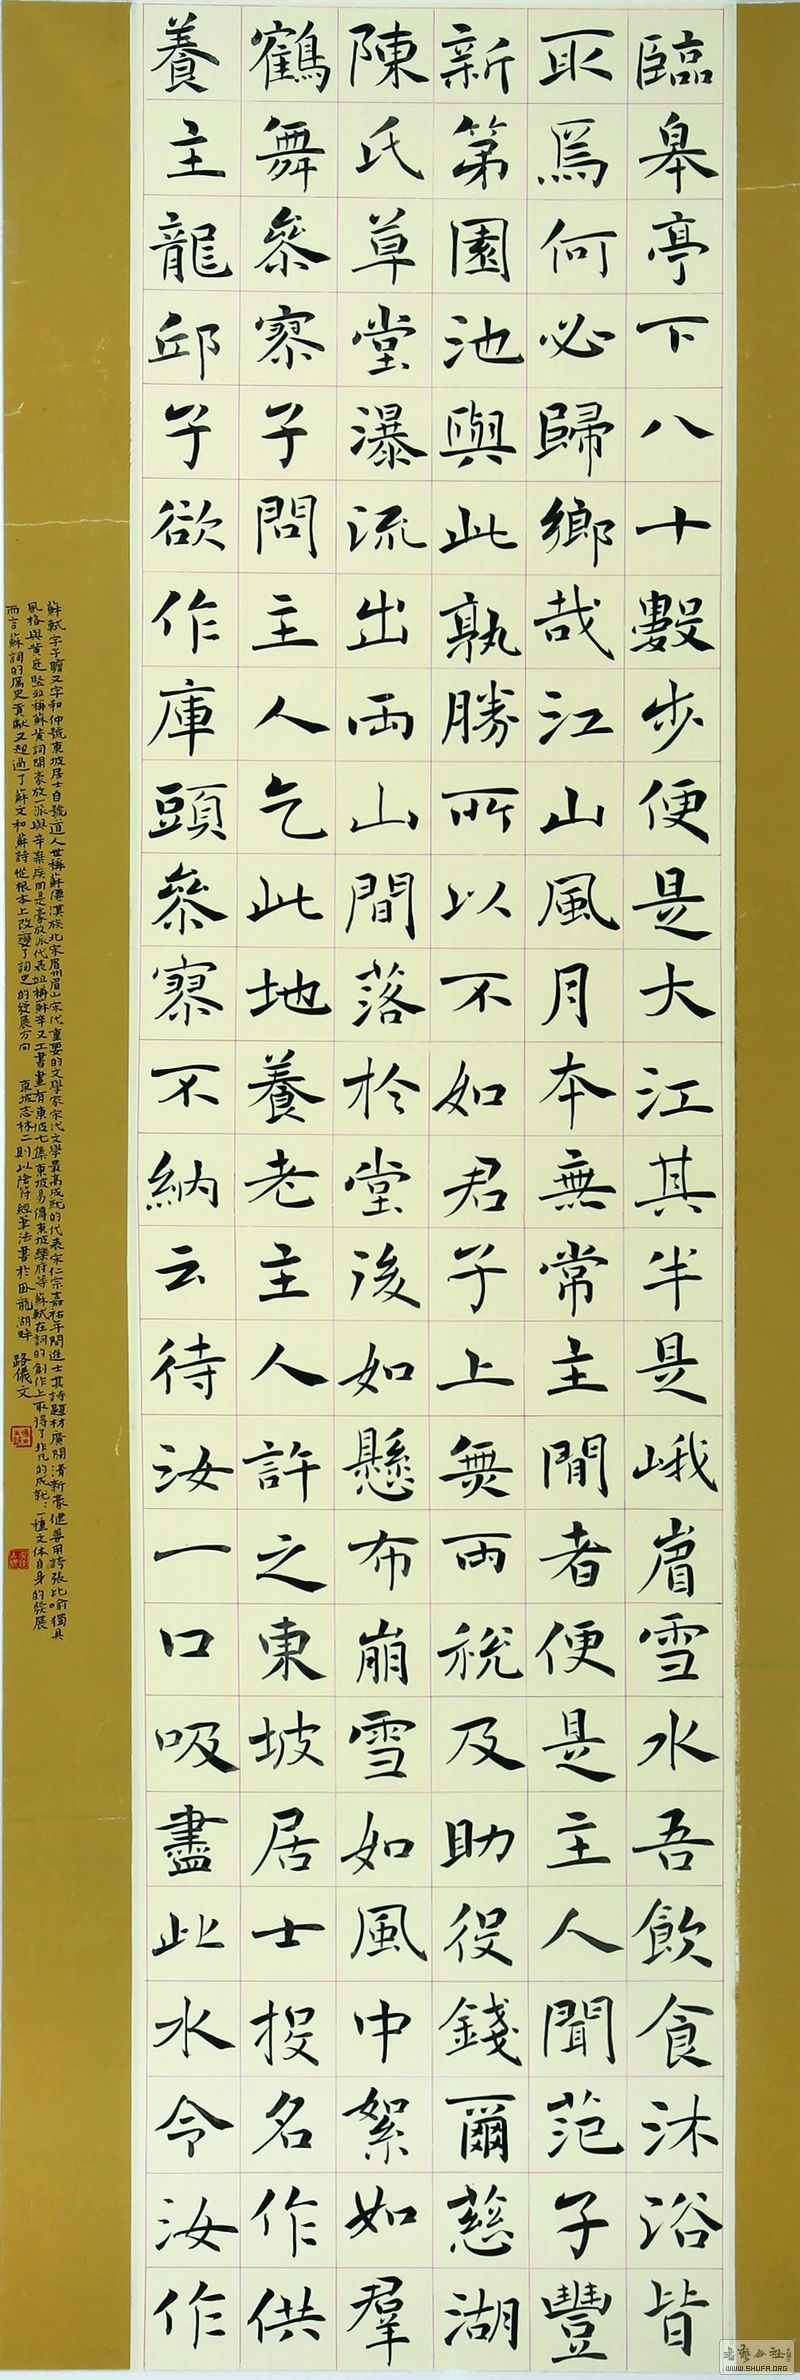 臨皋亭下八十數步便是大江其半是峨眉雪水吾飲食沐浴皆
取焉何必歸鄉哉江山風月本無常主閒者便是主人聞范子豐
新第園池與此孰勝所以不如君子上無兩稅及助役錢爾慈湖
陳氏草堂瀑流出兩山間落於堂後如懸布崩雪如風中絮如羣
鶴舞參寥子問主人乞此地養老主人許之東坡居士投名作供
養主龍邱子欲作庫頭參寥不納云待汝一口吸盡此水令汝作
蘇軾字子瞻又字和仲號東坡居士自號道人世稱蘇僊漢族北宋眉州眉山宋代重要的文學家宋代文學最高成就的代表宋仁宗嘉祐年間進士其詩題材廣闊清新豪健善用誇張比喻獨具
風格與黃庭堅並稱蘇黃詞開豪放一派與辛棄疾同是豪放派代表並稱蘇辛又工書畫有東坡七集東坡易傳東坡樂府等蘇軾在詞的創作上取得了非凡的成就一種文体自身的發展
而言蘇詞的歷史貢獻又超過了蘇文和蘇詩從根本上改變了詞史的發展方向 東坡志林二則以陰符經筆法書於臥龍湖畔 路儀文
WWW.SHUFA.ORG